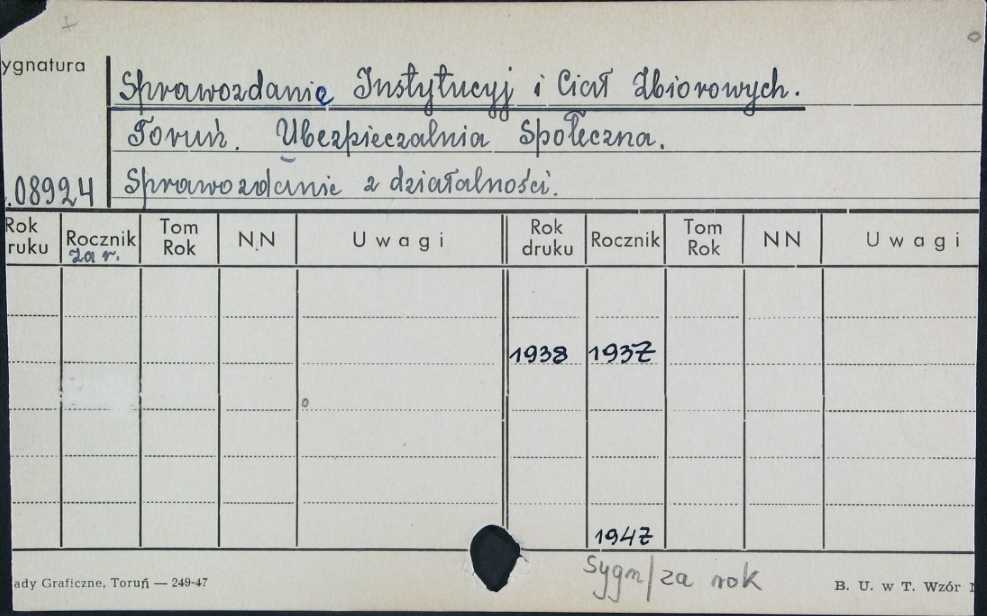 ygnatura
Sprawozdanie Instytucyj i Ciał Zbiorowych.
Toruń. Ubezpieczalnia Społeczna.
.08924 Sprawozdanie z działalności.
Rok ruku Rocznik za r. Tom Rok N.N Uwagi Rok druku Rocznik Tom Rok NN Uwagi
1938 1937
1947
Sygn/za rok
ady Graficzne, Toruń — 249-47 B. U. w T. Wzór